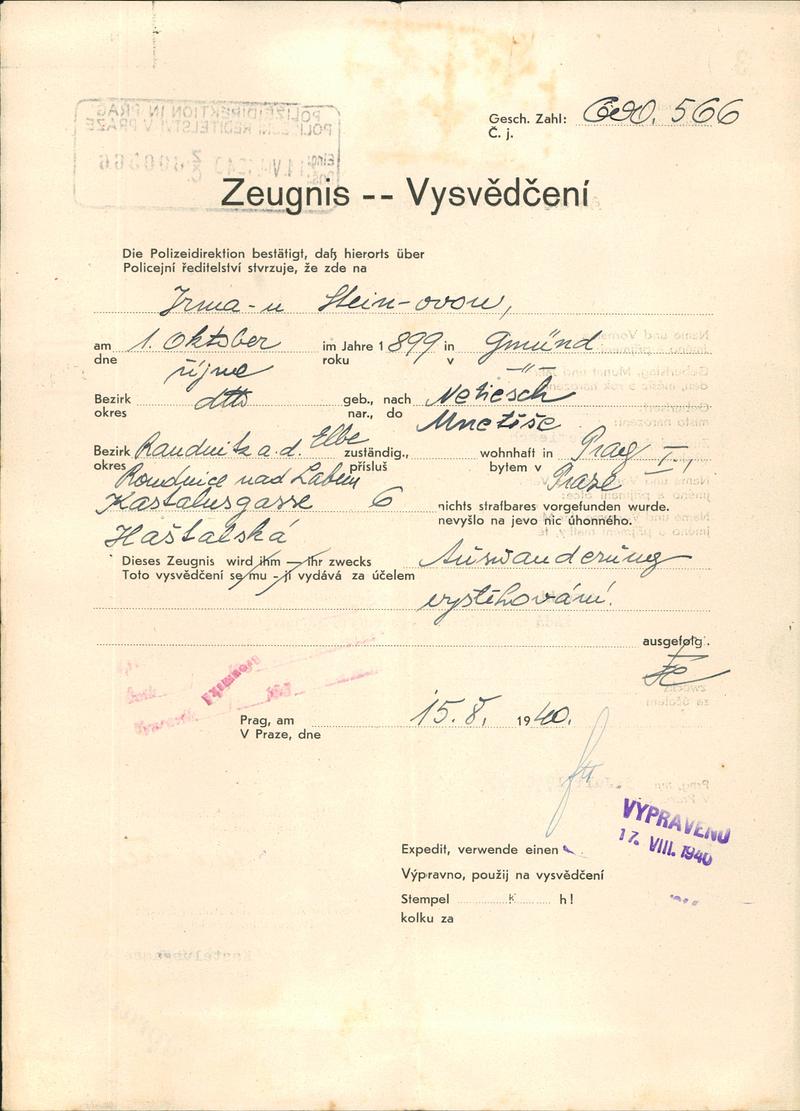 Gesch. Zahl: 690.566
Č. j.
Zeugnis -- Vysvědčení
Die Polizeidirektion bestätigt, daß hierorts über
Policejní ředitelství stvrzuje, že zde na
Irma-u Stein-ovou,
am 1. Oktober im Jahre 1899 in Gmünd
dne října roku v -"-
Bezirk dtto geb., nach Netiesch
okres nar., do Mnetěše
Bezirk Raudnitz a. d. Elbe zuständig., wohnhaft in Prag I.,
okres Roudnice nad Labem přísluš bytem v Praze
Kastalusgasse 6 nichts strafbares vorgefunden wurde.
Haštalská nevyšlo na jevo nic úhonného.
Dieses Zeugnis wird ihm — ihr zwecks Auswanderung
Toto vysvědčení se mu - jí vydává za účelem vystěhování.
ausgefolg.
Prag, am 15.8. 1940.
V Praze, dne
VYPRAVENO
17. VIII. 1940
Expedit, verwende einen
Výpravno, použij na vysvědčení
Stempel K h!
kolku za